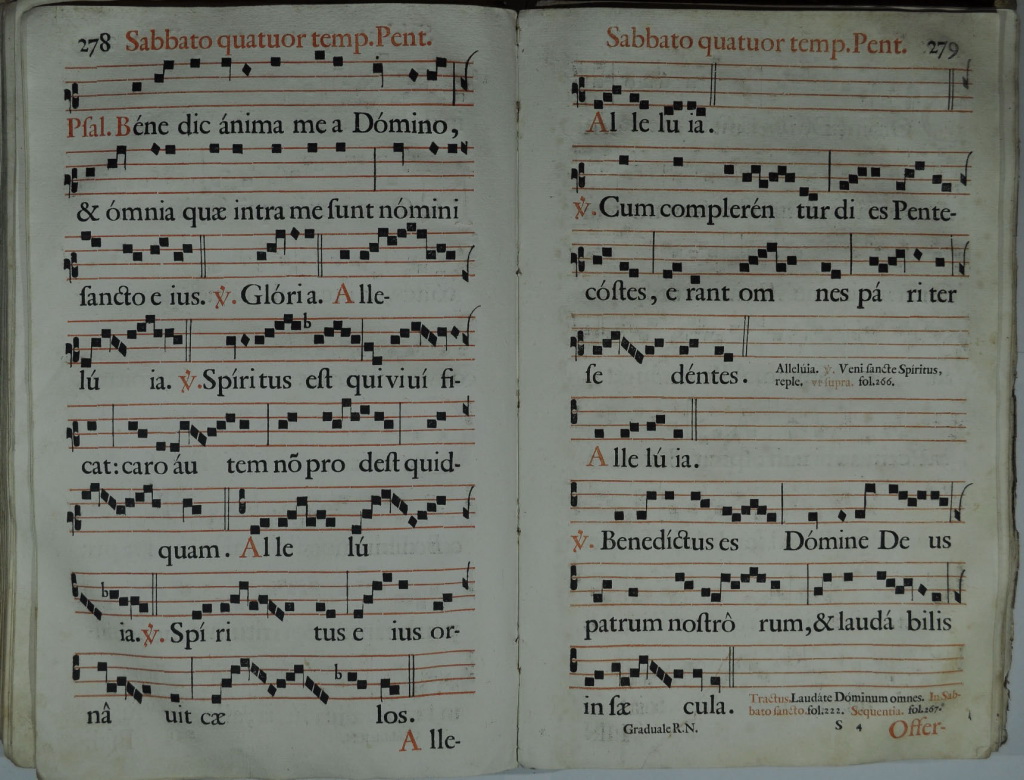 278 Sabbato quatuor temp.Pent.
Pſal. Béne dic ánima me a Dómino,
& ómnia quæ intra me ſunt nómini
ſancto e ius. ℣. Glória. Alle-
lú ia. ℣. Spíritus eſt qui viuí fi-
cat: caro áu tem nõ pro deſt quid-
quam. Al le lú
ia. ℣. Spí ri tus e ius or-
nâ uit cæ los.
A lle-
Sabbato quatuor temp.Pent. 279
Al le lu ia.
℣. Cum complerén tur di es Pente-
cóſtes, e rant om nes pá ri ter
ſe déntes. Allelúia. ℣. Veni ſancte Spiritus,
reple. vt ſupra. fol.266.
A lle lú ia.
℣. Benedíctus es Dómine De us
patrum noſtrô rum, & laudá bilis
in ſæ cula. Tractus. Laudáte Dóminum omnes. In Sab-
bato ſancto. fol.222. Sequentia. fol.267.
Graduale R.N. S 4 Offer-